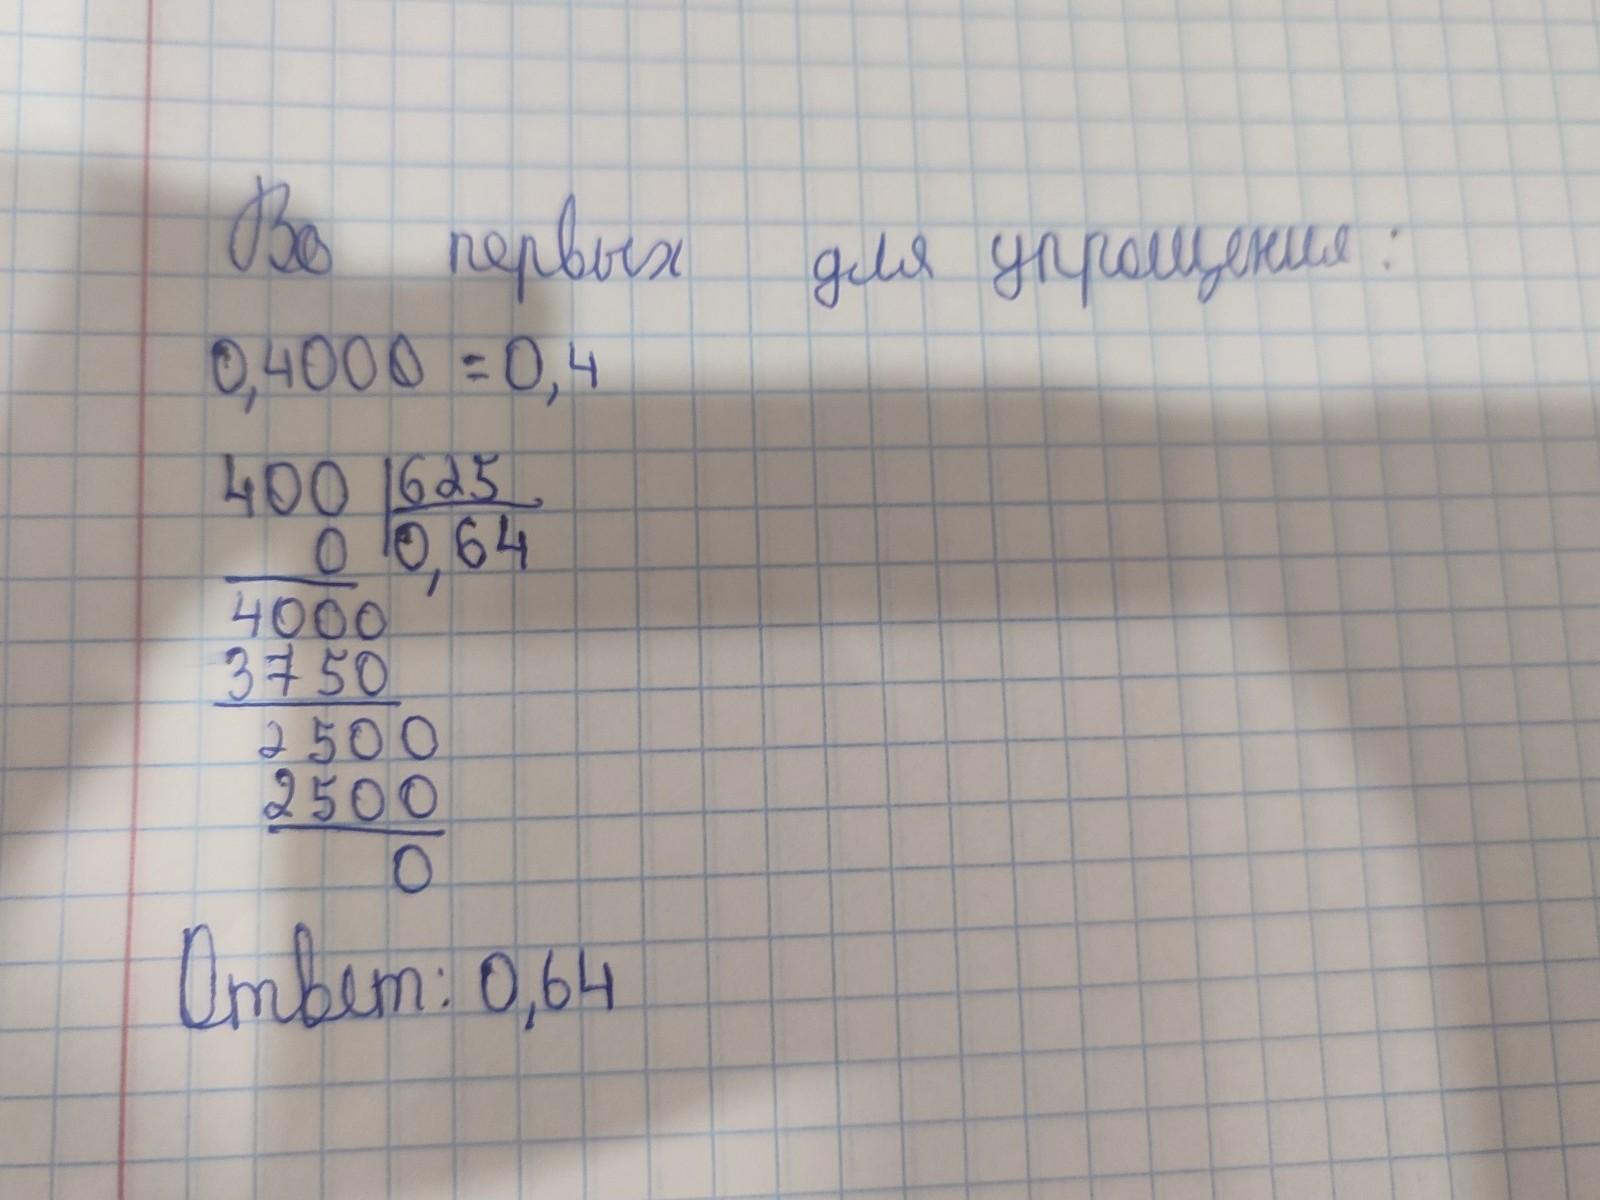 Во первых для упрощения:
0,4000 = 0,4
400 625
0 0,64
4000
3750
2500
2500
0
Ответ: 0,64